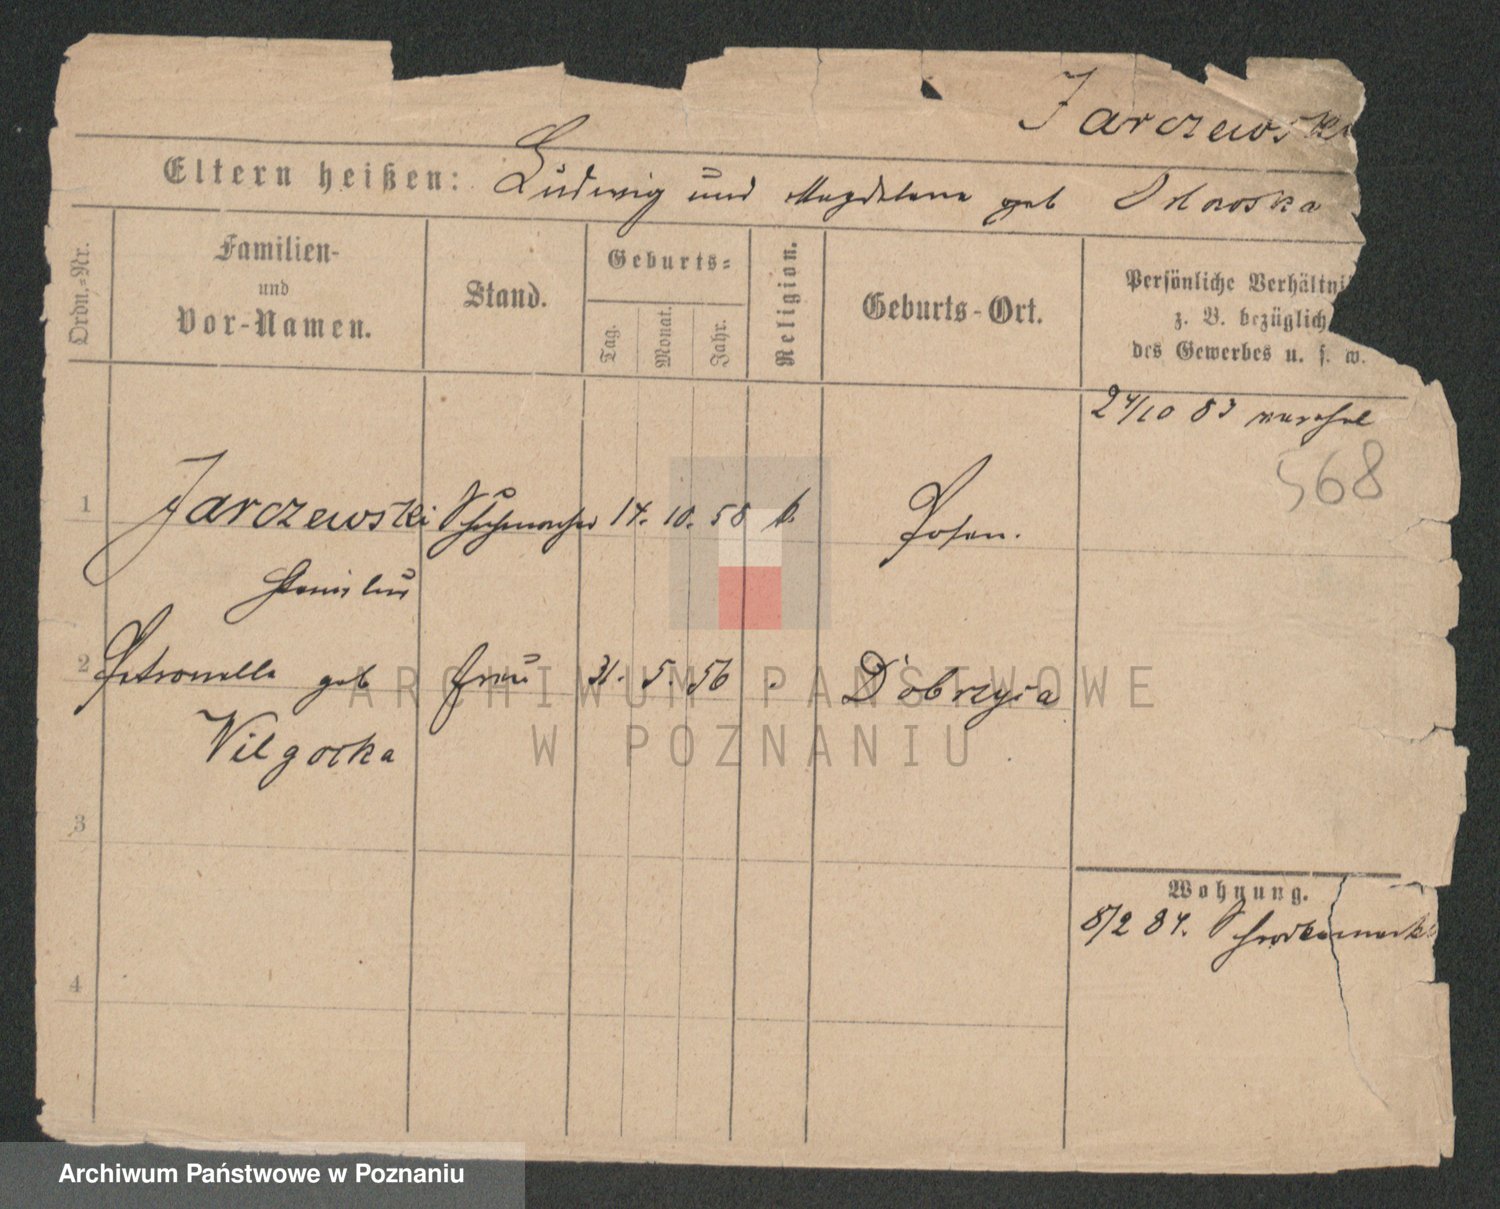 Jarczewski
Eltern heißen: Ludwig und Magdalena geb Orlowska
Ordn.-Nr.
Familien-
und
Vor-Namen.
Stand.
Geburts-
Tag.
Monat.
Jahr.
Religion.
Geburts-Ort.
Persönliche Verhältni
z. B. bezüglich
des Gewerbes u. s. w.
24/10 83
568
1 Jarczewski Schuhmacher 14. 10. 58 k. Posen.
Stanislaus
2 Petronella geb Frau 31. 5. 56 Dobrzyca
Wilgocka
3
Wohnung.
8/2 84. Schrodkamarkt
4
ARCHIWUM PAŃSTWOWE
W POZNANIU
Archiwum Państwowe w Poznaniu